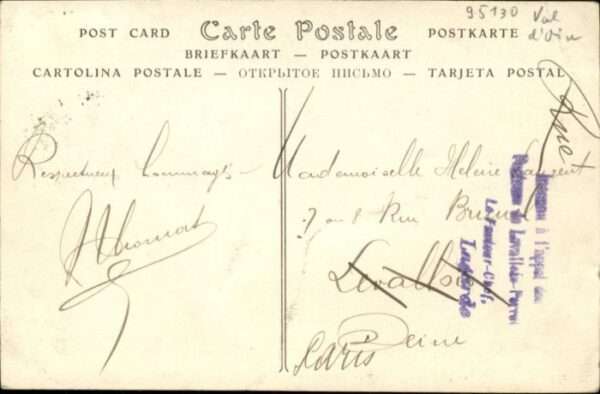 95130 Val
d'Oise
Carte Postale
POST CARD
POSTKARTE
BRIEFKAART — POSTKAART
CARTOLINA POSTALE — ОТКРЫТОЕ ПИСЬМО — TARJETA POSTAL
Respectueux hommages
Thomas
Mademoiselle Hélène Laurent
7 ou 8 Rue
Levallois
Seine
Paris
à l'appel des
de Levallois-Perret
Le Facteur-Chef,
Lagarde